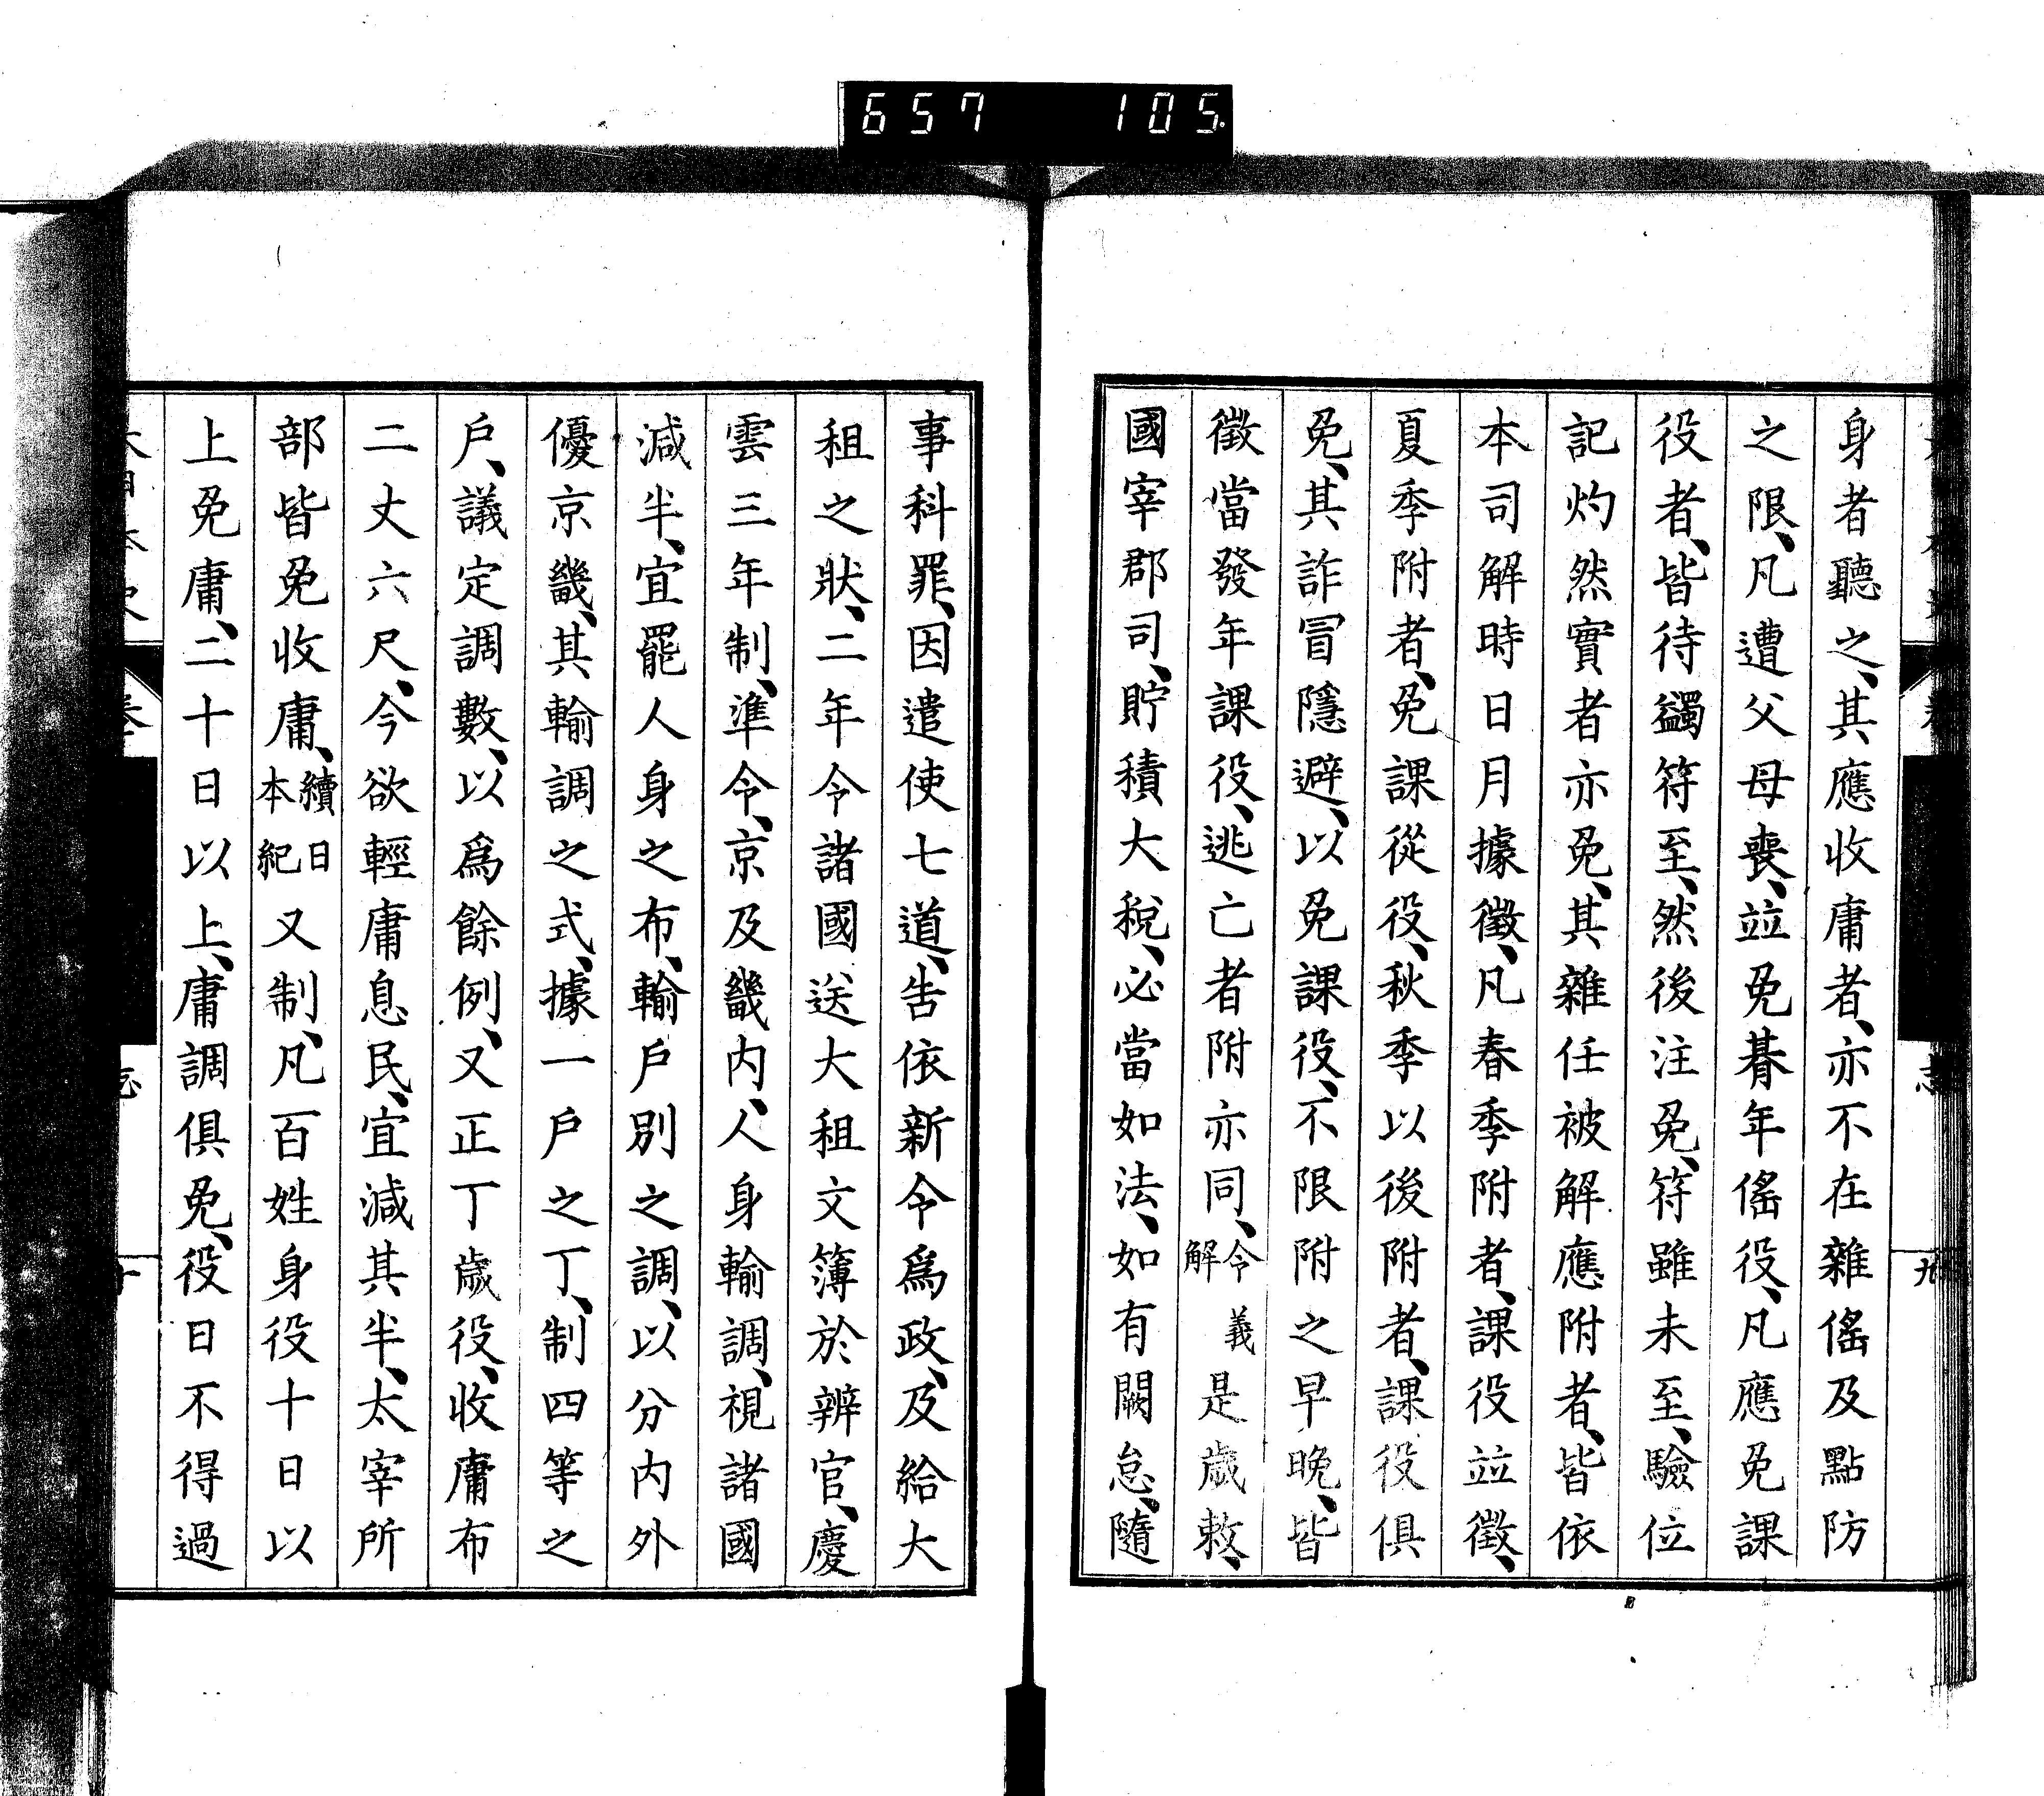 657 105
身者聽之、其應收庸者、亦不在雜徭及點防
之限、凡遭父母喪、並免朞年徭役、凡應免課
役者、皆待蠲符至、然後注免、符雖未至、驗位
記灼然實者亦免、其雜任被解應附者、皆依
本司解時日月據徵、凡春季附者、課役並徵、
夏季附者、免課從役、秋季以後附者、課役俱
免、其詐冒隱避、以免課役、不限附之早晚、皆
徵當發年課役、逃亡者附亦同、令義解是歲敕、
國宰郡司、貯積大稅、必當如法、如有闕怠、隨
志
九
事科罪、因遣使七道、告依新令爲政、及給大
租之狀、二年令諸國送大租文簿於辨官、慶
雲三年制、準令、京及畿內、人身輸調、視諸國
減半、宜罷人身之布、輸戶別之調、以分內外
優京畿、其輸調之式、據一戶之丁、制四等之
戶、議定調數、以爲餘例、又正丁歲役、收庸布
二丈六尺、今欲輕庸息民、宜減其半、太宰所
部皆免收庸、續日本紀又制、凡百姓身役十日以
上免庸、二十日以上、庸調俱免、役日不得過